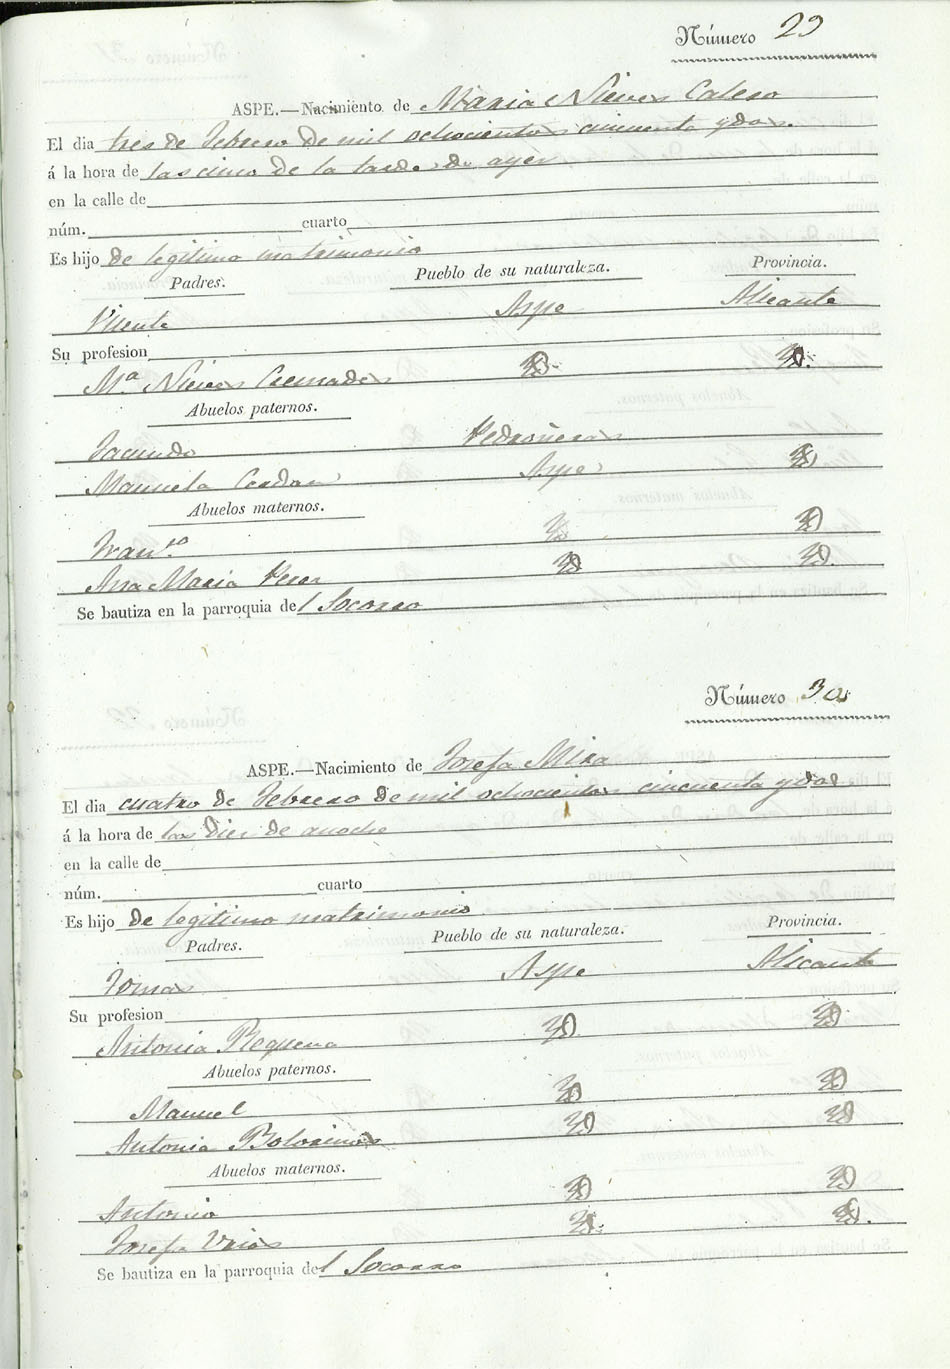 Número 29
ASPE.—Nacimiento de Maria Nieves Calero
El dia tres de Febrero de mil ochocientos cincuenta y dos.
á la hora de las cinco de la tarde de ayer
en la calle de
núm. cuarto
Es hijo de legitimo matrimonio
Padres. Pueblo de su naturaleza. Provincia.
Vicente Aspe Alicante
Su profesion
Mª Nieves Cremades
Abuelos paternos.
Facundo Pedroñeras
Manuela Cerdan Aspe
Abuelos maternos.
Franco
Ana Maria Perez
Se bautiza en la parroquia del Socorro
Número 30
ASPE.—Nacimiento de Josefa Mira
El dia cuatro de Febrero de mil ochocientos cincuenta y dos
á la hora de las Diez de anoche
en la calle de
núm. cuarto
Es hijo de legitimo matrimonio
Padres. Pueblo de su naturaleza. Provincia.
Tomas Aspe Alicante
Su profesion
Antonia Requena
Abuelos paternos.
Manuel
Antonia Botorinos
Abuelos maternos.
Antonio
Josefa
Se bautiza en la parroquia del Socorro